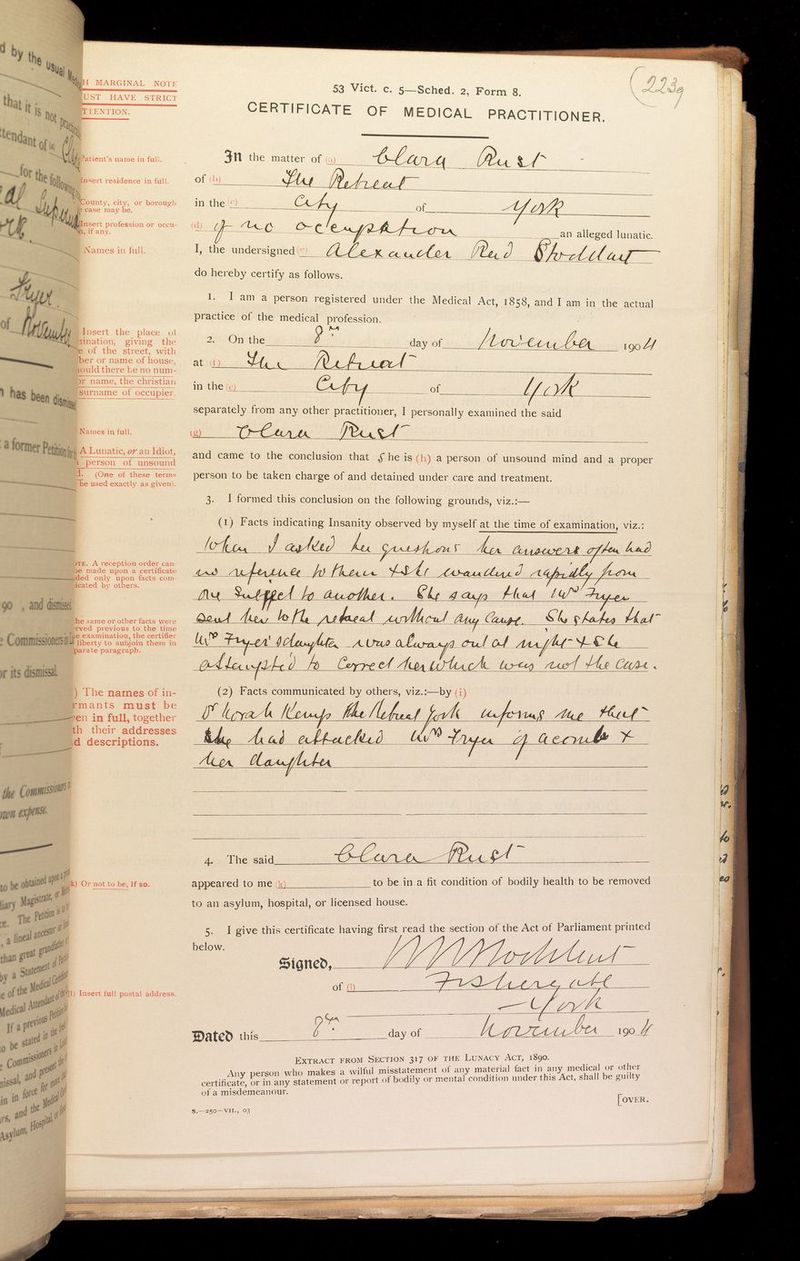 d by the usual
that it is not
for the
of
has been dismissed
a former Petition
90 , and dismissed
Commissioners in
or its dismissal
the Commissioners
own expense.
to be obtained upon
Magistrate, or
The Petition is to
a lineal ancestor or
than great grandfather
by a Statement of
e of the Medical
Medical Attendant of the
If a previous Petition
to be stated in the
Commissioners in
and
in force for
rs, and the Medical
Asylum, Hospital or
H MARGINAL NOTE
UST HAVE STRICT
TTENTION.
Patient's name in full.
Insert residence in full.
County, city, or borough
case may be.
Insert profession or occu-
, if any.
Names in full.
Insert the place of
ination, giving the
e of the street, with
ber or name of house,
ould there be no num-
or name, the christian
surname of occupier.
Names in full.
A Lunatic, or an Idiot,
a person of unsound
(One of these terms
be used exactly as given).
TE. A reception order can
be made upon a certificate
ded only upon facts com-
icated by others.
he same or other facts were
rved previous to the time
e examination, the certifier
liberty to subjoin them in
parate paragraph.
) The names of in-
rmants must be
en in full, together
th their addresses
d descriptions.
k) Or not to be, if so.
(l) Insert full postal address.
223g
53 Vict. c. 5—Sched. 2, Form 8.
CERTIFICATE OF MEDICAL PRACTITIONER.
In the matter of (a) Clara Rust
of (b) The Retreat
in the (c) City of York
(d) of no occupation an alleged lunatic.
I, the undersigned (e) Alexander Reid Stoddart
do hereby certify as follows.
1. I am a person registered under the Medical Act, 1858, and I am in the actual
practice of the medical profession.
2. On the 8th day of November 1904
at (f) The Retreat
in the (c) City of York
separately from any other practitioner, I personally examined the said
(g) Clara Rust
and came to the conclusion that She is (h) a person of unsound mind and a proper
person to be taken charge of and detained under care and treatment.
3. I formed this conclusion on the following grounds, viz.:—
(1) Facts indicating Insanity observed by myself at the time of examination, viz.:
When I asked her questions her answers often had
no reference to them & she wandered rapidly from
one subject to another. She says that Mrs Fryer
sent her to the retreat without any cause. She states that
Mrs Fryer's daughter was always out at night & She
attempted to correct her which was not the case.
(2) Facts communicated by others, viz.:—by (i)
Dr Norah Kemp The Retreat York informs me that
She had attacked Mrs Fryer of Acomb &
her daughter
4. The said Clara Rust
appeared to me (k) to be in a fit condition of bodily health to be removed
to an asylum, hospital, or licensed house.
5. I give this certificate having first read the section of the Act of Parliament printed
below.
Signed, Stoddart
of (l) Fishergate
York
Dated this 8th day of November 1904
Extract from Section 317 of the Lunacy Act, 1890.
Any person who makes a wilful misstatement of any material fact in any medical or other
certificate, or in any statement or report of bodily or mental condition under this Act, shall be guilty
of a misdemeanour.
[OVER.
S.—250—VII., 03